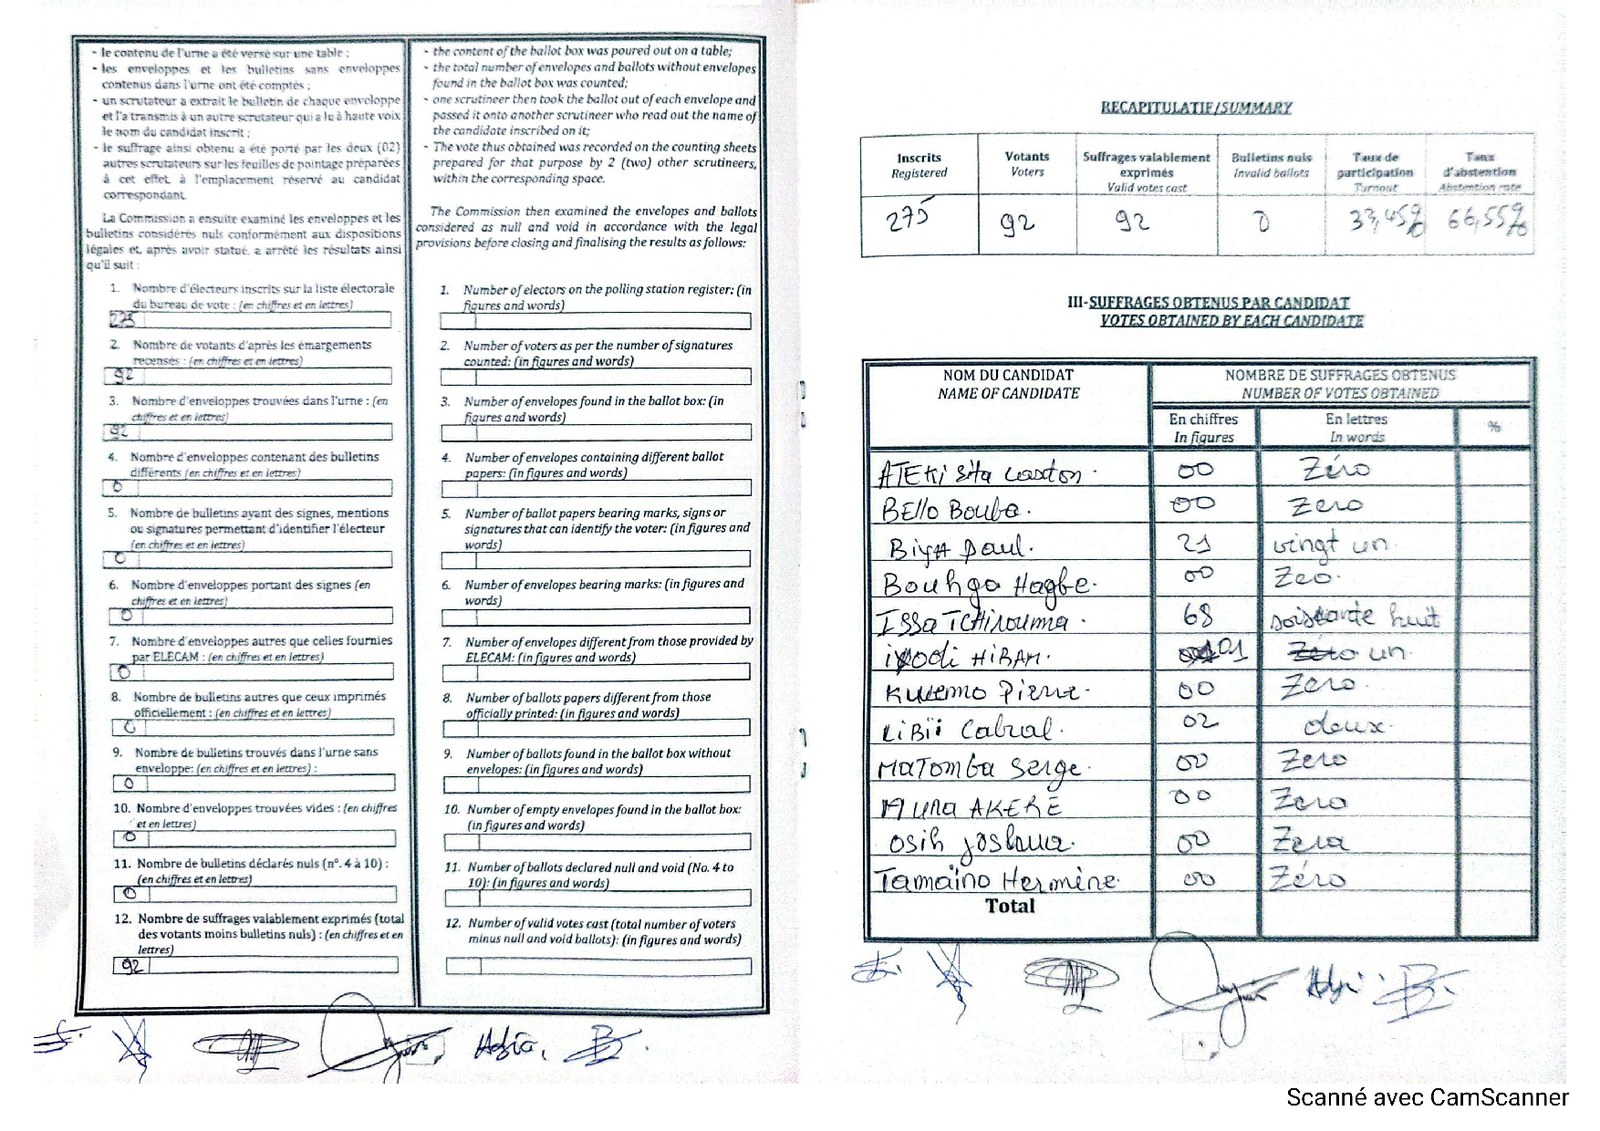 - le contenu de l'urne a été versé sur une table ;
- les enveloppes et les bulletins sans enveloppes
contenus dans l'urne ont été comptés ;
- un scrutateur a extrait le bulletin de chaque enveloppe
et l'a transmis à un autre scrutateur qui a lu à haute voix
le nom du candidat inscrit ;
- le suffrage ainsi obtenu a été porté par les deux (02)
autres scrutateurs sur les feuilles de pointage préparées
à cet effet, à l'emplacement réservé au candidat
correspondant.
La Commission a ensuite examiné les enveloppes et les
bulletins considérés nuls conformément aux dispositions
légales et, après avoir statué, a arrêté les résultats ainsi
qu'il suit :
1. Nombre d'électeurs inscrits sur la liste électorale
du bureau de vote : (en chiffres et en lettres)
275
2. Nombre de votants d'après les émargements
recensés : (en chiffres et en lettres)
92
3. Nombre d'enveloppes trouvées dans l'urne : (en
chiffres et en lettres)
92
4. Nombre d'enveloppes contenant des bulletins
différents (en chiffres et en lettres)
0
5. Nombre de bulletins ayant des signes, mentions
ou signatures permettant d'identifier l'électeur
(en chiffres et en lettres)
0
6. Nombre d'enveloppes portant des signes (en
chiffres et en lettres)
0
7. Nombre d'enveloppes autres que celles fournies
par ELECAM : (en chiffres et en lettres)
0
8. Nombre de bulletins autres que ceux imprimés
officiellement : (en chiffres et en lettres)
0
9. Nombre de bulletins trouvés dans l'urne sans
enveloppe: (en chiffres et en lettres) :
0
10. Nombre d'enveloppes trouvées vides : (en chiffres
et en lettres)
0
11. Nombre de bulletins déclarés nuls (n°. 4 à 10) :
(en chiffres et en lettres)
0
12. Nombre de suffrages valablement exprimés (total
des votants moins bulletins nuls) : (en chiffres et en
lettres)
92
- the content of the ballot box was poured out on a table;
- the total number of envelopes and ballots without envelopes
found in the ballot box was counted;
- one scrutineer then took the ballot out of each envelope and
passed it onto another scrutineer who read out the name of
the candidate inscribed on it;
- The vote thus obtained was recorded on the counting sheets
prepared for that purpose by 2 (two) other scrutineers,
within the corresponding space.
The Commission then examined the envelopes and ballots
considered as null and void in accordance with the legal
provisions before closing and finalising the results as follows:
1. Number of electors on the polling station register: (in
figures and words)
2. Number of voters as per the number of signatures
counted: (in figures and words)
3. Number of envelopes found in the ballot box: (in
figures and words)
4. Number of envelopes containing different ballot
papers: (in figures and words)
5. Number of ballot papers bearing marks, signs or
signatures that can identify the voter: (in figures and
words)
6. Number of envelopes bearing marks: (in figures and
words)
7. Number of envelopes different from those provided by
ELECAM: (in figures and words)
8. Number of ballots papers different from those
officially printed: (in figures and words)
9. Number of ballots found in the ballot box without
envelopes: (in figures and words)
10. Number of empty envelopes found in the ballot box:
(in figures and words)
11. Number of ballots declared null and void (No. 4 to
10): (in figures and words)
12. Number of valid votes cast (total number of voters
minus null and void ballots): (in figures and words)
RECAPITULATIF/SUMMARY
Inscrits Registered
Votants Voters
Suffrages valablement exprimés Valid votes cast
Bulletins nuls Invalid ballots
Taux de participation Turnout
Taux d'abstention Abstention rate
275 92 92 0 33,45% 66,55%
III-SUFFRAGES OBTENUS PAR CANDIDAT
VOTES OBTAINED BY EACH CANDIDATE
NOM DU CANDIDAT NOMBRE DE SUFFRAGES OBTENUS
NAME OF CANDIDATE NUMBER OF VOTES OBTAINED
En chiffres En lettres %
In figures In words
ATEKI Sita Caxton. 00 Zéro
BEllo Bouba. 00 Zero
BiyA Paul. 21 vingt un.
Bouhga Hagbe. 00 Zeo.
ISSa TCHirouma. 68 soixante huit
HiRAM. 01 un.
Pierre. 00 Zero.
LiBii Cabral. 02 deux.
MaTomba Serge. 00 Zero
Muna AKERE 00 Zero
Osih Joshua. 00 Zero
Tamaïno Hermine. 00 Zéro
Total
Scanné avec CamScanner